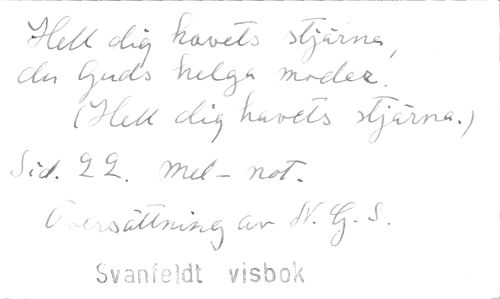 Hell dig havets stjärna,
du Guds helga moder.
(Hell dig havets stjärna.)
Sid. 22. Mel-not.
Översättning av N. G. S.
Svanfeldt visbok